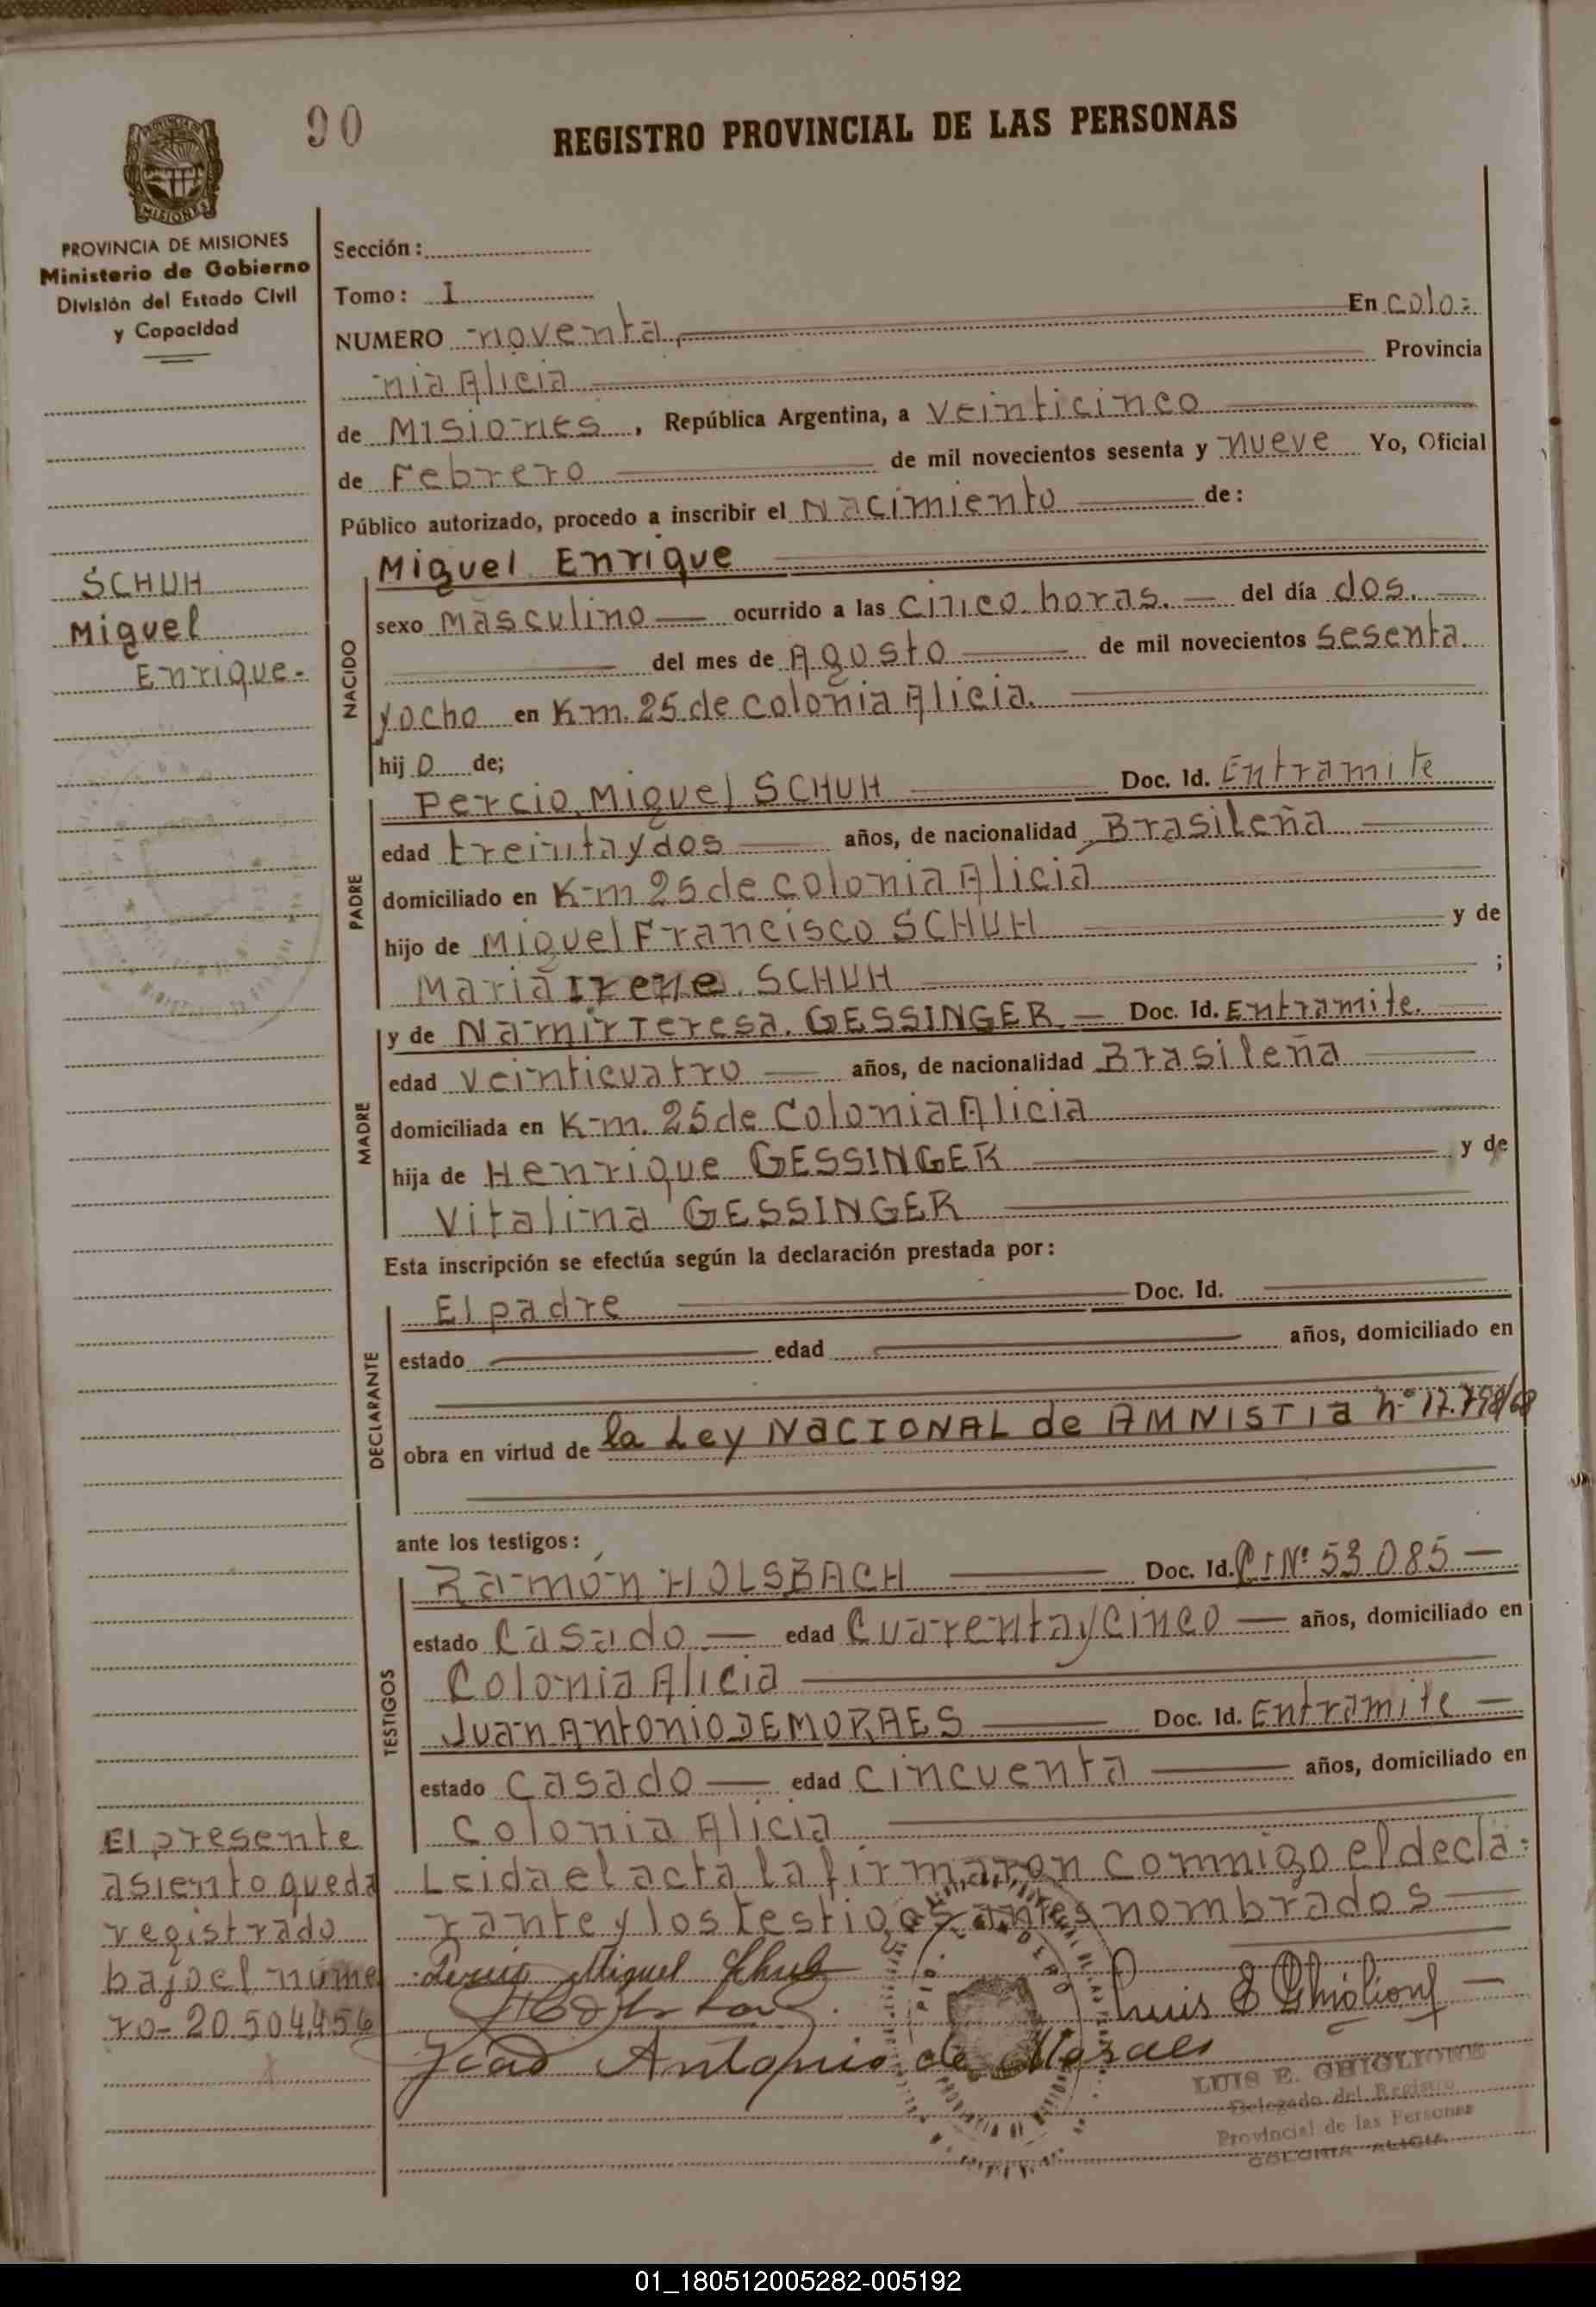 90
REGISTRO PROVINCIAL DE LAS PERSONAS
PROVINCIA DE MISIONES
Ministerio de Gobierno
División del Estado Civil
y Capacidad
SCHUH
Miguel
Enrique.-
Sección:
Tomo: I
NUMERO noventa, En Colo=
nia Alicia Provincia
de Misiones, República Argentina, a veinticinco
de Febrero de mil novecientos sesenta y nueve Yo, Oficial
Público autorizado, procedo a inscribir el Nacimiento de:
NACIDO
Miguel Enrique
sexo masculino ocurrido a las cinco horas. del día dos.
del mes de Agosto de mil novecientos sesenta
y ocho en Km. 25 de colonia Alicia.
hijo de;
PADRE
Percio Miguel SCHUH Doc. Id. En tramite
edad treinta y dos años, de nacionalidad Brasileña
domiciliado en Km 25 de colonia Alicia
hijo de Miguel Francisco SCHUH y de
Maria Irene SCHUH ;
MADRE
y de Namir Teresa GESSINGER Doc. Id. En tramite.
edad veinticuatro años, de nacionalidad Brasileña
domiciliada en Km. 25 de Colonia Alicia
hija de Henrique GESSINGER y de
Vitalina GESSINGER
Esta inscripción se efectúa según la declaración prestada por:
DECLARANTE
El padre Doc. Id.
estado edad años, domiciliado en
obra en virtud de la Ley NACIONAL de AMNISTIA nº 17.798/68
ante los testigos:
TESTIGOS
Ramón HOLSBACH Doc. Id. CI Nº 53.085
estado Casado edad Cuarenta y cinco años, domiciliado en
Colonia Alicia
Juan Antonio DE MORAES Doc. Id. En tramite
estado casado edad cincuenta años, domiciliado en
Colonia Alicia
Leida el acta la firmaron comnigo el decla=
rante y los testigos antes nombrados
El presente
asiento queda
registrado
bajo el núme
ro- 20.504.456
Miguel Schuh
Luis E Ghiglione
João Antonio de Moraes
LUIS E. GHIGLIONE
Delegado del Registro
Provincial de las Personas
COLONIA ALICIA
01_180512005282-005192